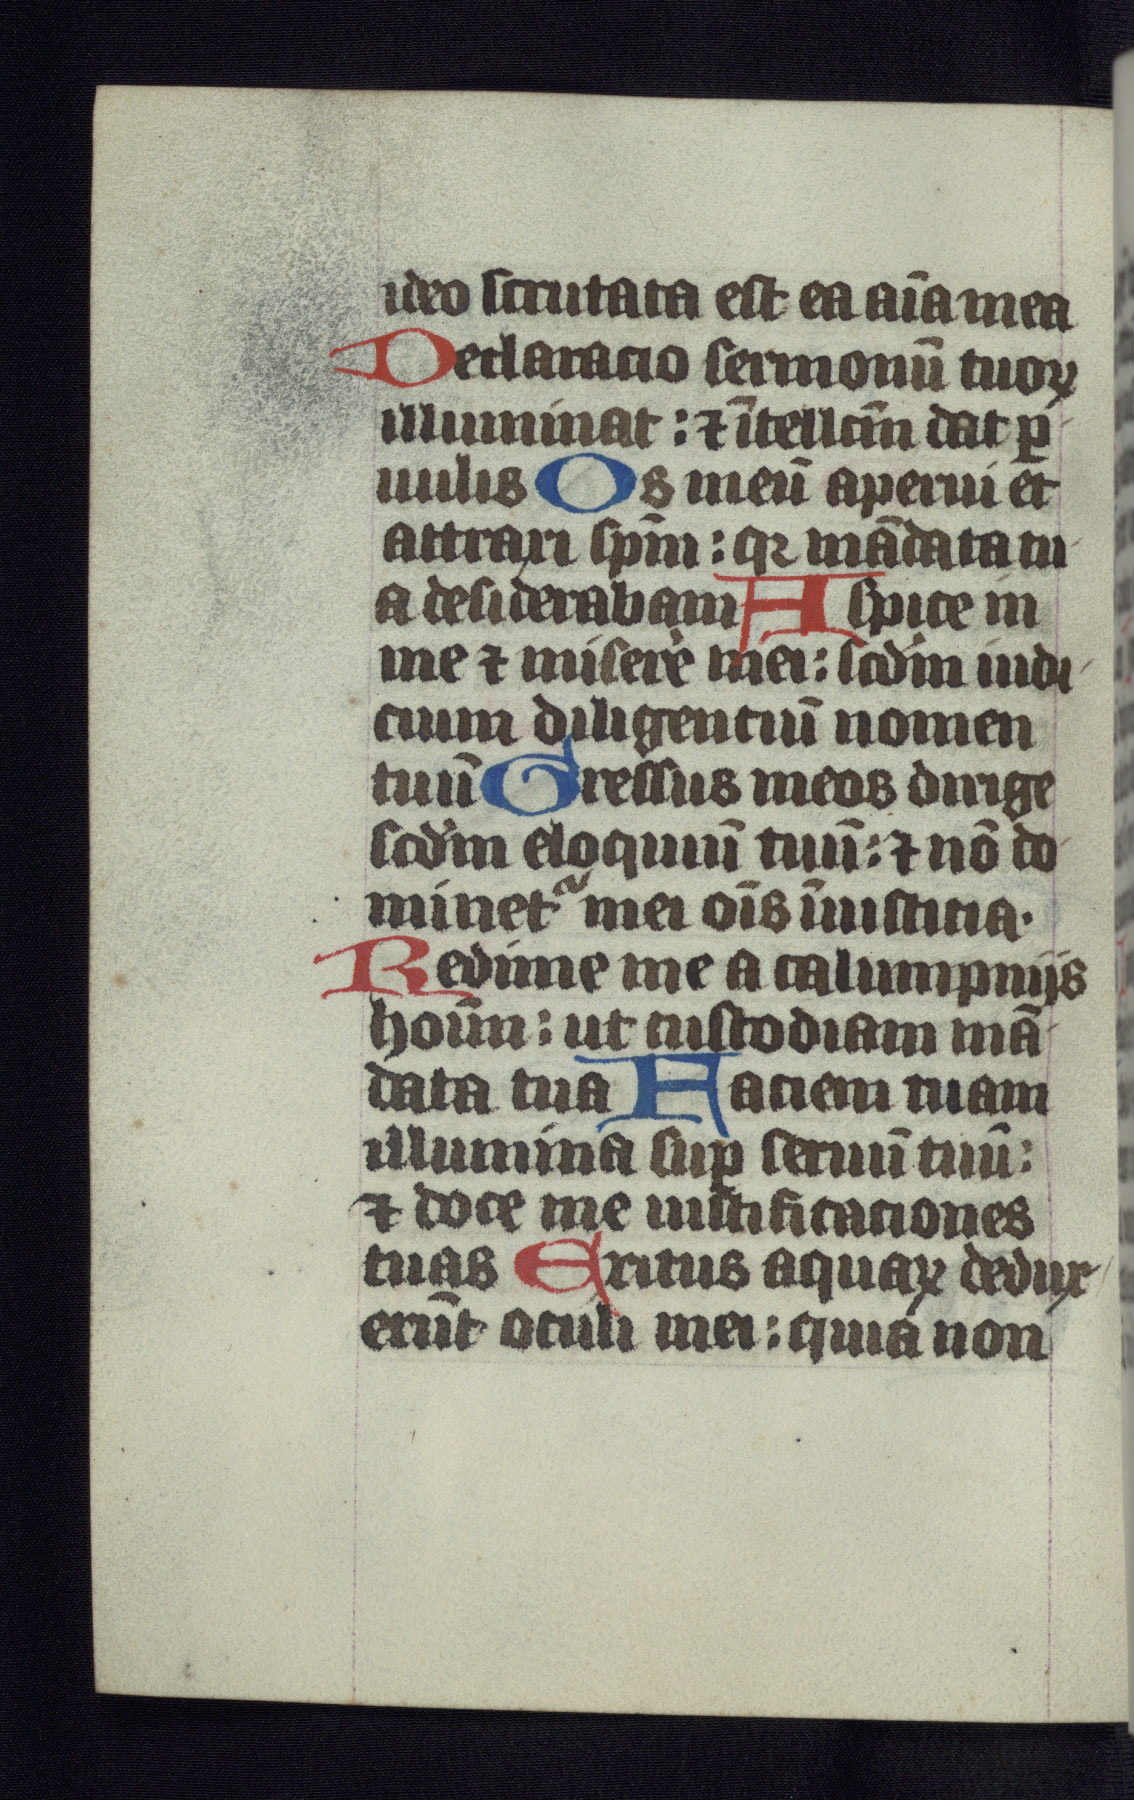 ideo scrutata est ea aīa mea
Declaracio sermonū tuoꝝ
illuminat : ⁊ ītellcīn dat ꝑ
uulis Os meū aperui et
attraxi spm̄ : qꝛ mādata tu
a desiderabam Aspice in
me ⁊ miserē mei : scd̄m iudi
cium diligenciū nomen
tuū Gressus meos dirige
scd̄m eloquiū tuū : ⁊ nō do
minetᷓ mei oīs īiusticia ·
Redime me a calumpnijs
hoīm : ut custodiam mā
data tua Faciem tuam
illumina suꝑ seruū tuū :
⁊ doce me iustificaciones
tuas Exitus aquaꝝ dedux
erūt oculi mei : quia non